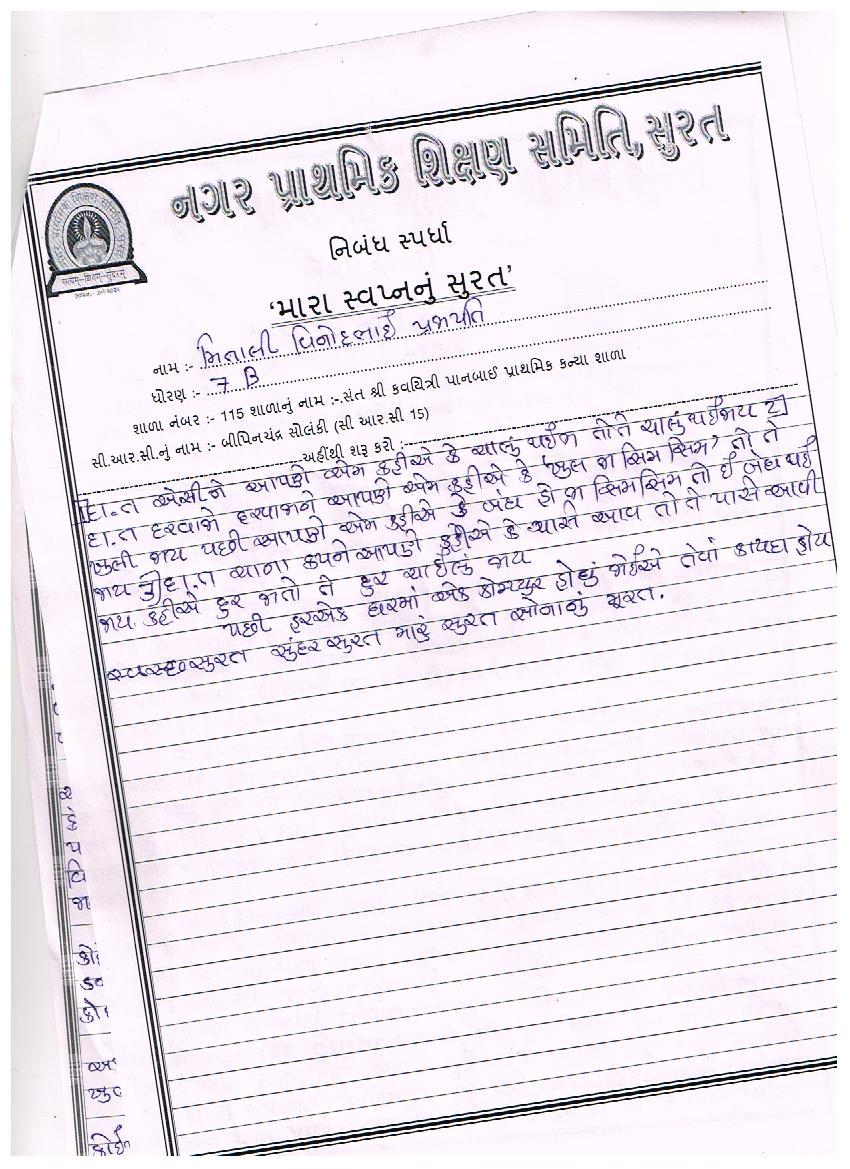 નગર પ્રાથમિક શિક્ષણ સમિતિ, સુરત
નિબંધ સ્પર્ધા
‘મારા સ્વપ્નનું સુરત’
નામ :- મિતાલી વિનોદભાઈ પ્રજાપતિ
ધોરણ :- 7 B
શાળા નંબર :- 115 શાળાનું નામ :-સંત શ્રી કવયિત્રી પાનબાઈ પ્રાથમિક કન્યા શાળા
સી.આર.સી.નું નામ :- બીપિનચંદ્ર સોલંકી (સી આર.સી 15)
અહીંથી શરૂ કરો :-
1] દા.ત એસીને આપણે એમ કહીએ કે ચાલું થઈજા તો તે ચાલું થઈજાય 2]
દા.ત દરવાજો દરવાજાને આપણે એમ કહીએ કે ‘ખુલ જા સિમ સિમ’ તો તે
ખુલી જાય પછી આપણે એમ કહીએ કે બંધ હો જા સિમસિમ તો ઈ બંધ થઈ
જાય 3] દા.ત ચાના કપને આપણે કહીએ કે પાસે આવ તો તે પાસે આવી
જાય. કહીએ દુર જાતો તે દુર ચાઈલું જાય
પછી દરએક ઘરમાં એક કોમ્પ્યુર હોવું જોઈએ તેવાં કાયદા હોય
સુરત સુંદર સુરત મારું સુરત સોનાનું મૂરત.
સત્યમ્-શિવમ્-સુંદરમ્